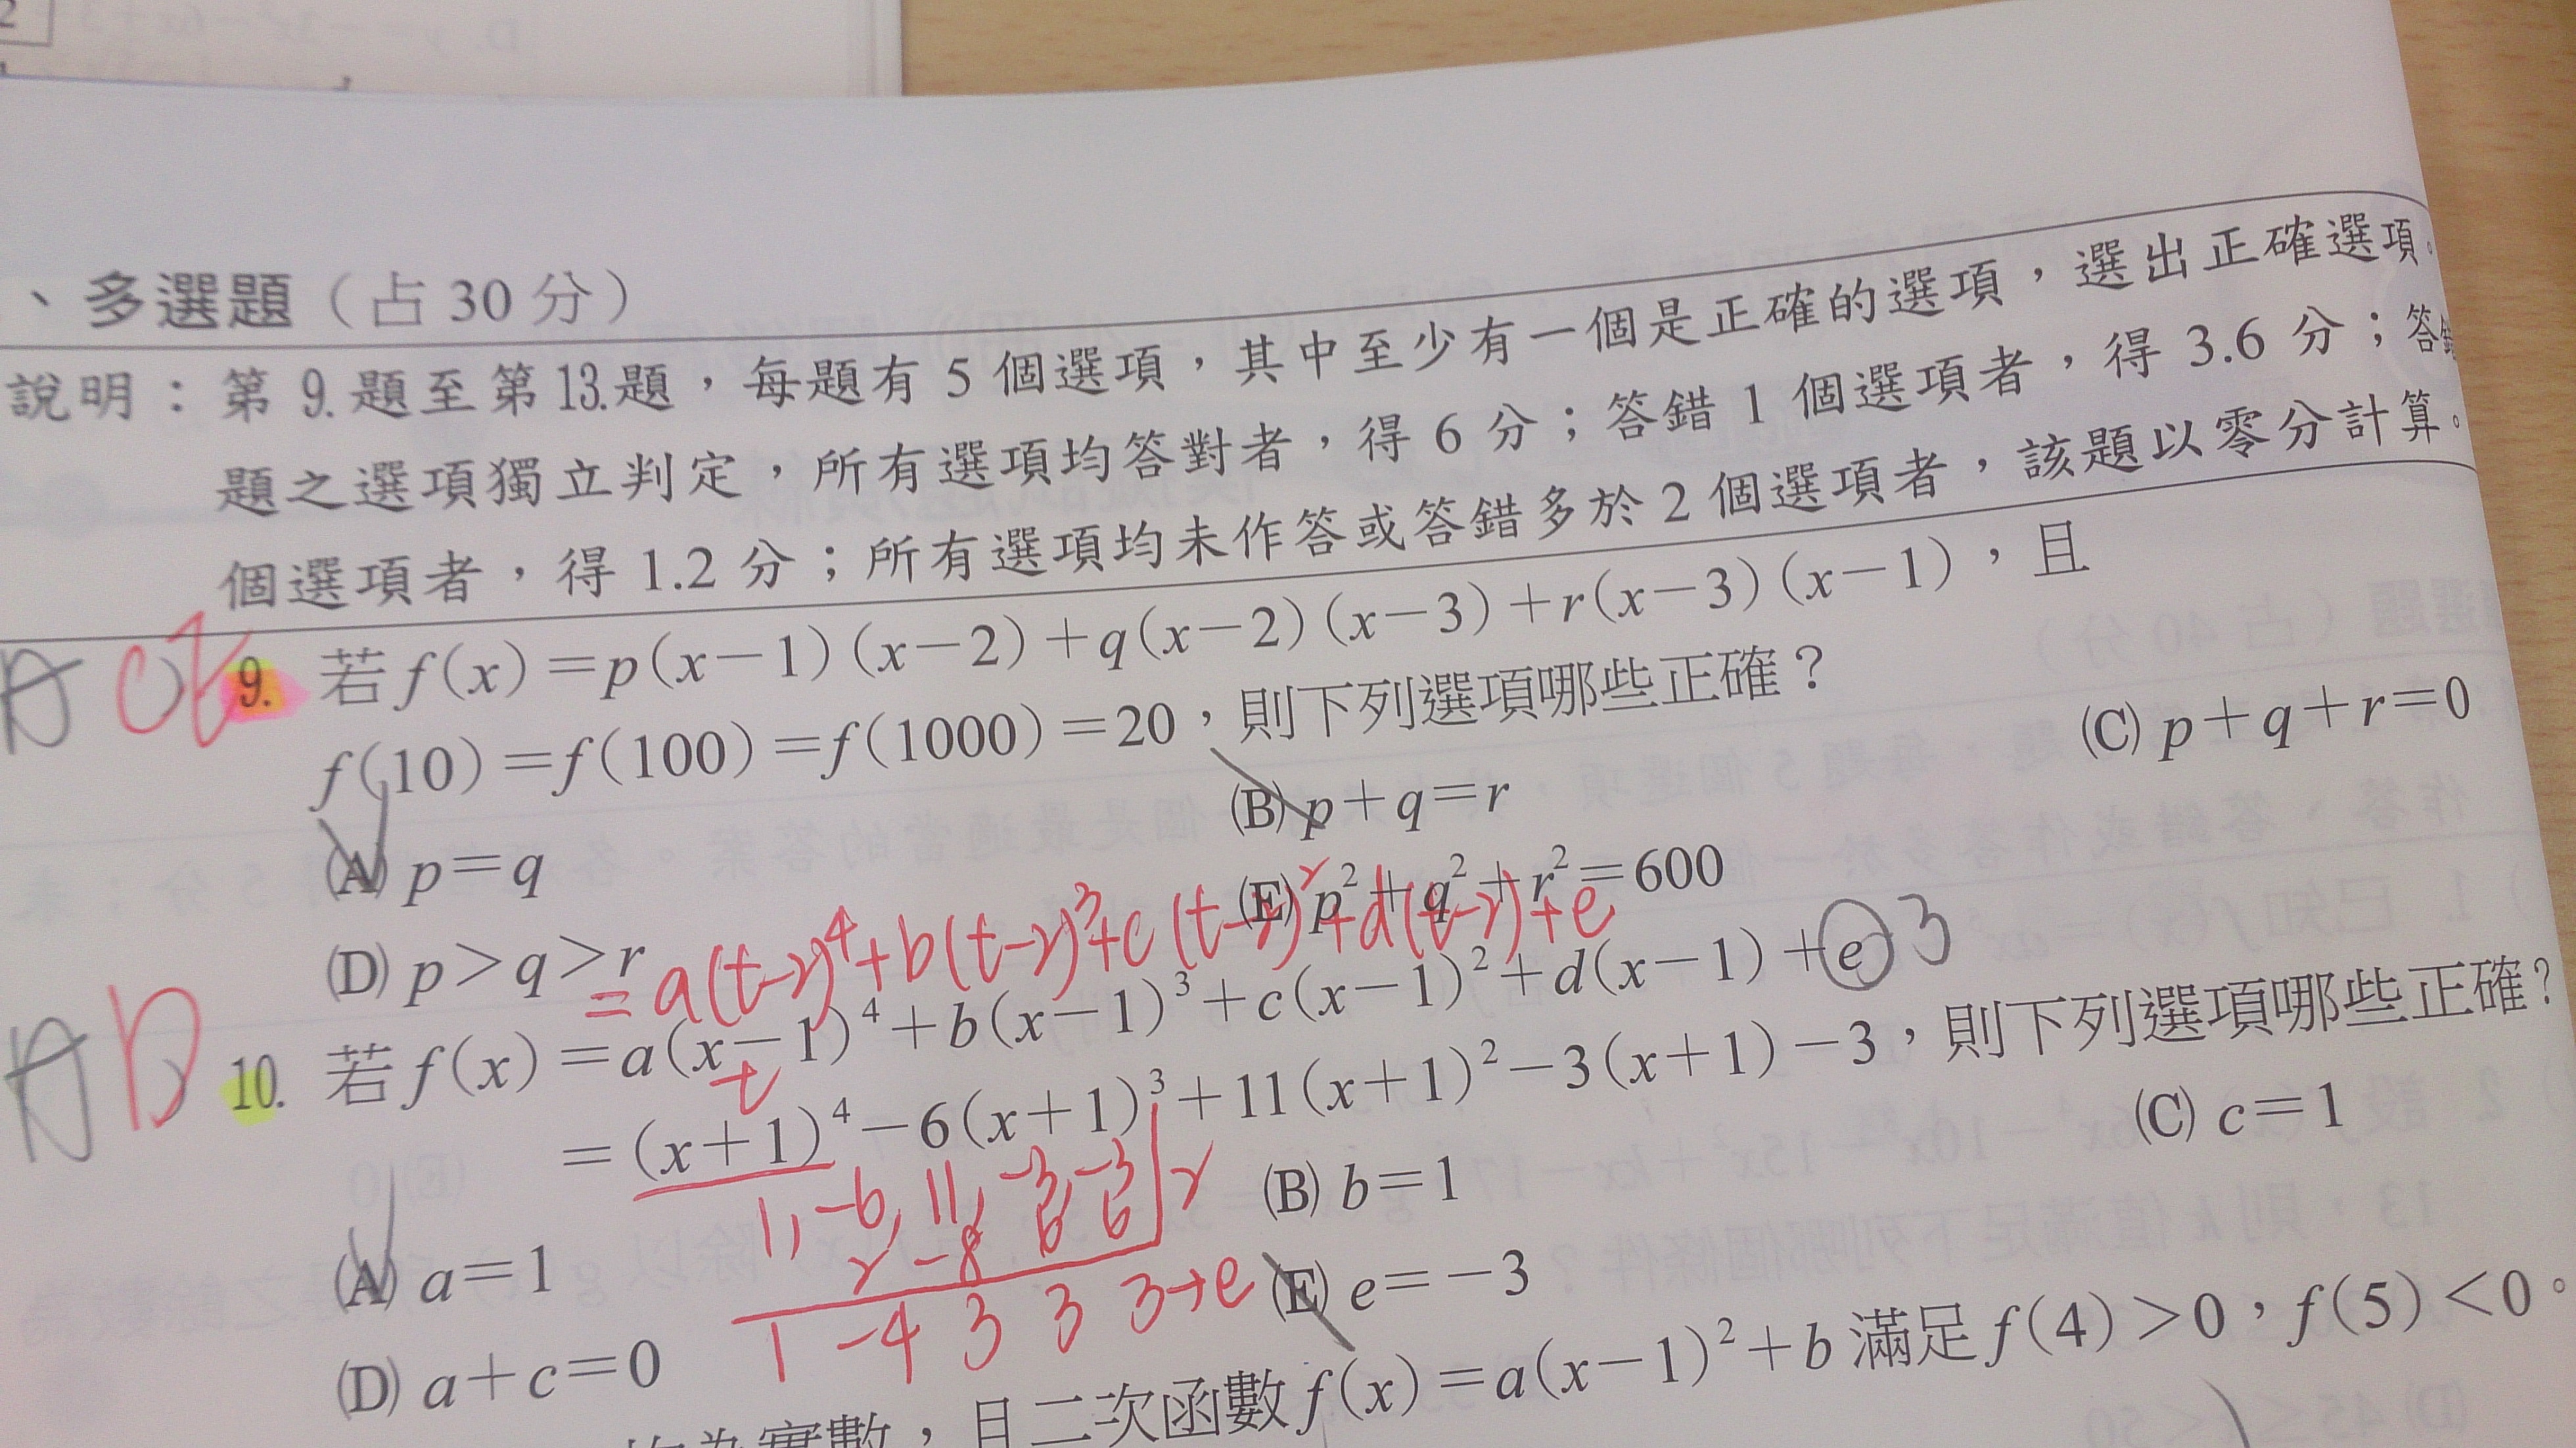 、多選題（占 30 分）
說明：第 9. 題至第 13. 題，每題有 5 個選項，其中至少有一個是正確的選項，選出正確選項。
題之選項獨立判定，所有選項均答對者，得 6 分；答錯 1 個選項者，得 3.6 分；答錯
個選項者，得 1.2 分；所有選項均未作答或答錯多於 2 個選項者，該題以零分計算。
9. 若 f(x)=p(x-1)(x-2)+q(x-2)(x-3)+r(x-3)(x-1)，且
f(10)=f(100)=f(1000)=20，則下列選項哪些正確？
(A) p=q (B) p+q=r (C) p+q+r=0
(D) p>q>r (E) p²+q²+r²=600
=a(t-2)⁴+b(t-2)³+c(t-2)²+d(t-2)+e
10. 若 f(x)=a(x-1)⁴+b(x-1)³+c(x-1)²+d(x-1)+e 3
t
=(x+1)⁴-6(x+1)³+11(x+1)²-3(x+1)-3，則下列選項哪些正確？
(A) a=1 (B) b=1 (C) c=1
(D) a+c=0 (E) e=-3
1, -6, 11, -3, -3 2
2 -8 6 6
1 -4 3 3 3→e
且二次函數 f(x)=a(x-1)²+b 滿足 f(4)>0，f(5)<0。